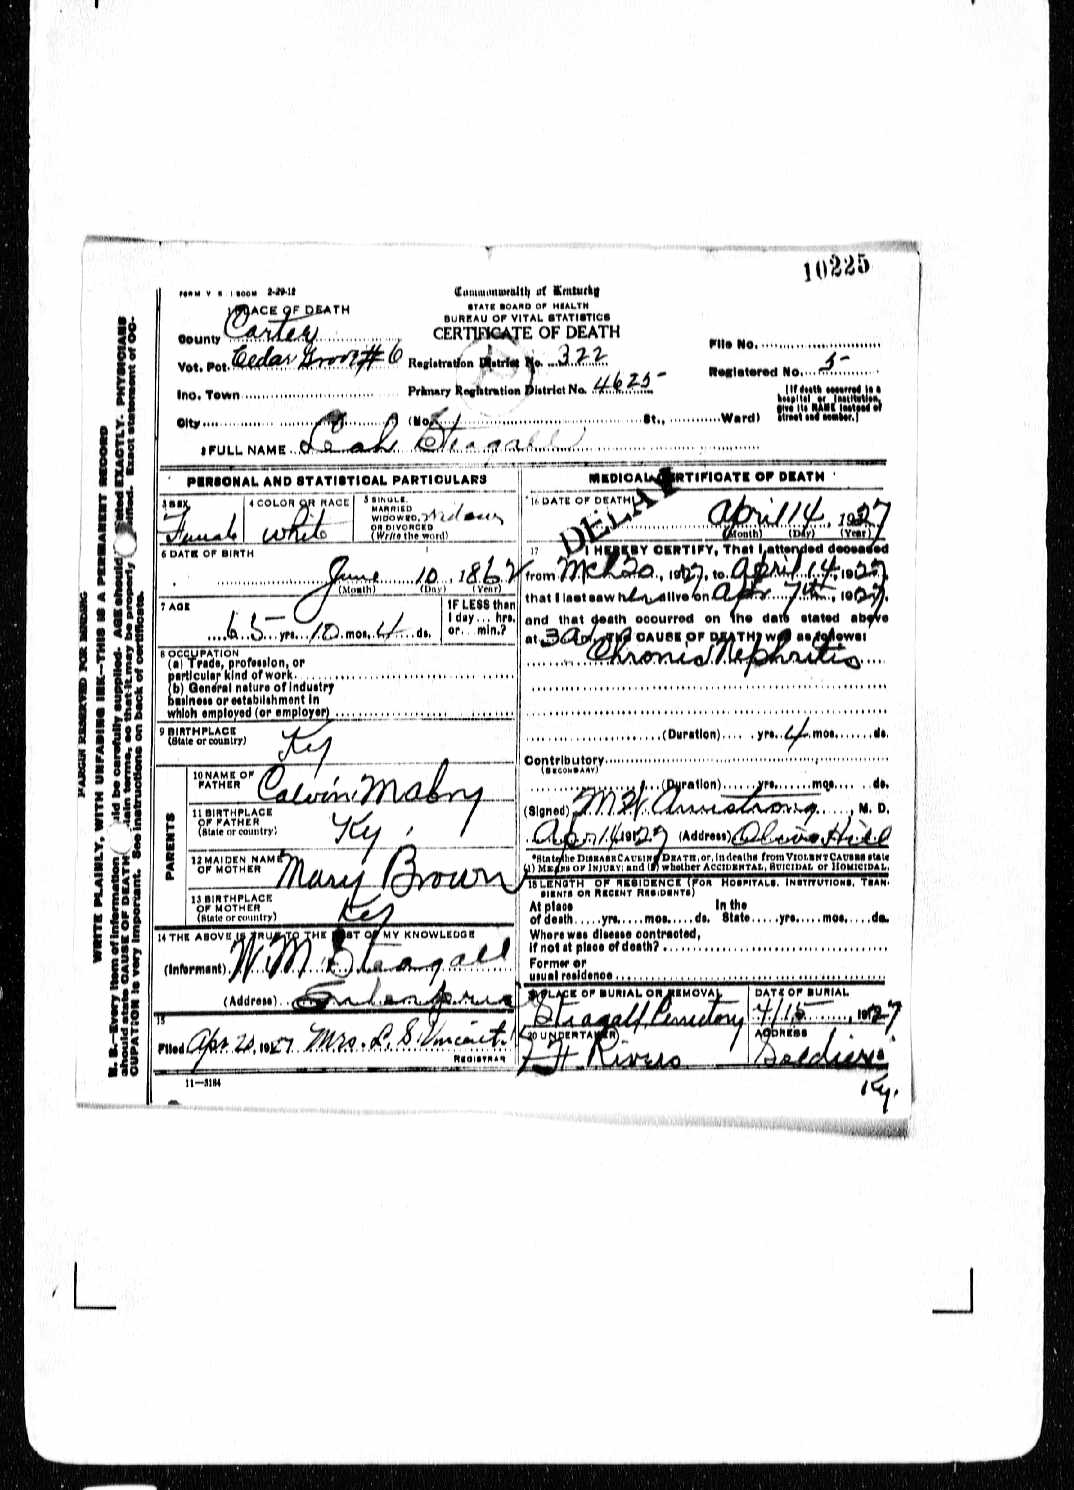 10225
FORM V S 1 500M 2-29-12
Commonwealth of Kentucky
STATE BOARD OF HEALTH
BUREAU OF VITAL STATISTICS
CERTIFICATE OF DEATH
1 PLACE OF DEATH
County Carter
Vot. Pct. Cedar Grove #6
Inc. Town
City
Registration District No. 322
Primary Registration District No. 4625
(No. St., Ward)
File No.
Registered No. 5
[If death occurred in a hospital or institution, give its NAME instead of street and number.]
2 FULL NAME Leah Steagall
PERSONAL AND STATISTICAL PARTICULARS
3 SEX Female
4 COLOR OR RACE White
5 SINGLE, MARRIED WIDOWED, OR DIVORCED (Write the word) Widow
6 DATE OF BIRTH
June 10, 1862
(Month) (Day) (Year)
7 AGE
65 yrs. 10 mos. 4 ds.
IF LESS than 1 day... hrs. or... min.?
8 OCCUPATION
(a) Trade, profession, or particular kind of work
(b) General nature of industry business or establishment in which employed (or employer)
9 BIRTHPLACE (State or country) Ky
PARENTS
10 NAME OF FATHER Calvin Mabry
11 BIRTHPLACE OF FATHER (State or country) Ky.
12 MAIDEN NAME OF MOTHER Mary Brown
13 BIRTHPLACE OF MOTHER (State or country) Ky
14 THE ABOVE IS TRUE TO THE BEST OF MY KNOWLEDGE
(Informant) W M Steagall
(Address) Enterprise
15
Filed Apr 20, 1927 Mrs. L. S. Vincent
REGISTRAR
11—3184
MEDICAL CERTIFICATE OF DEATH
DELAY
16 DATE OF DEATH
April 14, 1927
(Month) (Day) (Year)
17 I HEREBY CERTIFY, That I attended deceased
from Mch 20, 1927, to April 14, 1927,
that I last saw her alive on Apr 7th, 1927,
and that death occurred on the date stated above
at 3 The CAUSE OF DEATH was as follows:
Chronic Nephritis
(Duration) yrs. 4 mos. ds.
Contributory
(SECONDARY)
(Duration) yrs. mos. ds.
(Signed) M H Armstrong, M. D.
Apr 14 1927 (Address) Olive Hill
*State the DISEASE CAUSING DEATH, or, in deaths from VIOLENT CAUSES state
(1) MEANS OF INJURY; and (2) whether ACCIDENTAL, SUICIDAL or HOMICIDAL.
18 LENGTH OF RESIDENCE (FOR HOSPITALS, INSTITUTIONS, TRANSIENTS OR RECENT RESIDENTS)
At place of death yrs. mos. ds. In the State yrs. mos. ds.
Where was disease contracted,
if not at place of death?
Former or
usual residence
19 PLACE OF BURIAL OR REMOVAL
Steagall Cemetery
DATE OF BURIAL
4/15, 1927
20 UNDERTAKER
F H Rivers
ADDRESS
Soldier
Ky.
MARGIN RESERVED FOR BINDING
WRITE PLAINLY, WITH UNFADING INK—THIS IS A PERMANENT RECORD
N. B.—Every item of information should be carefully supplied. AGE should be stated EXACTLY. PHYSICIANS
should state CAUSE OF DEATH in plain terms, so that it may be properly classified. Exact statement of OC-
CUPATION is very important. See instructions on back of certificate.